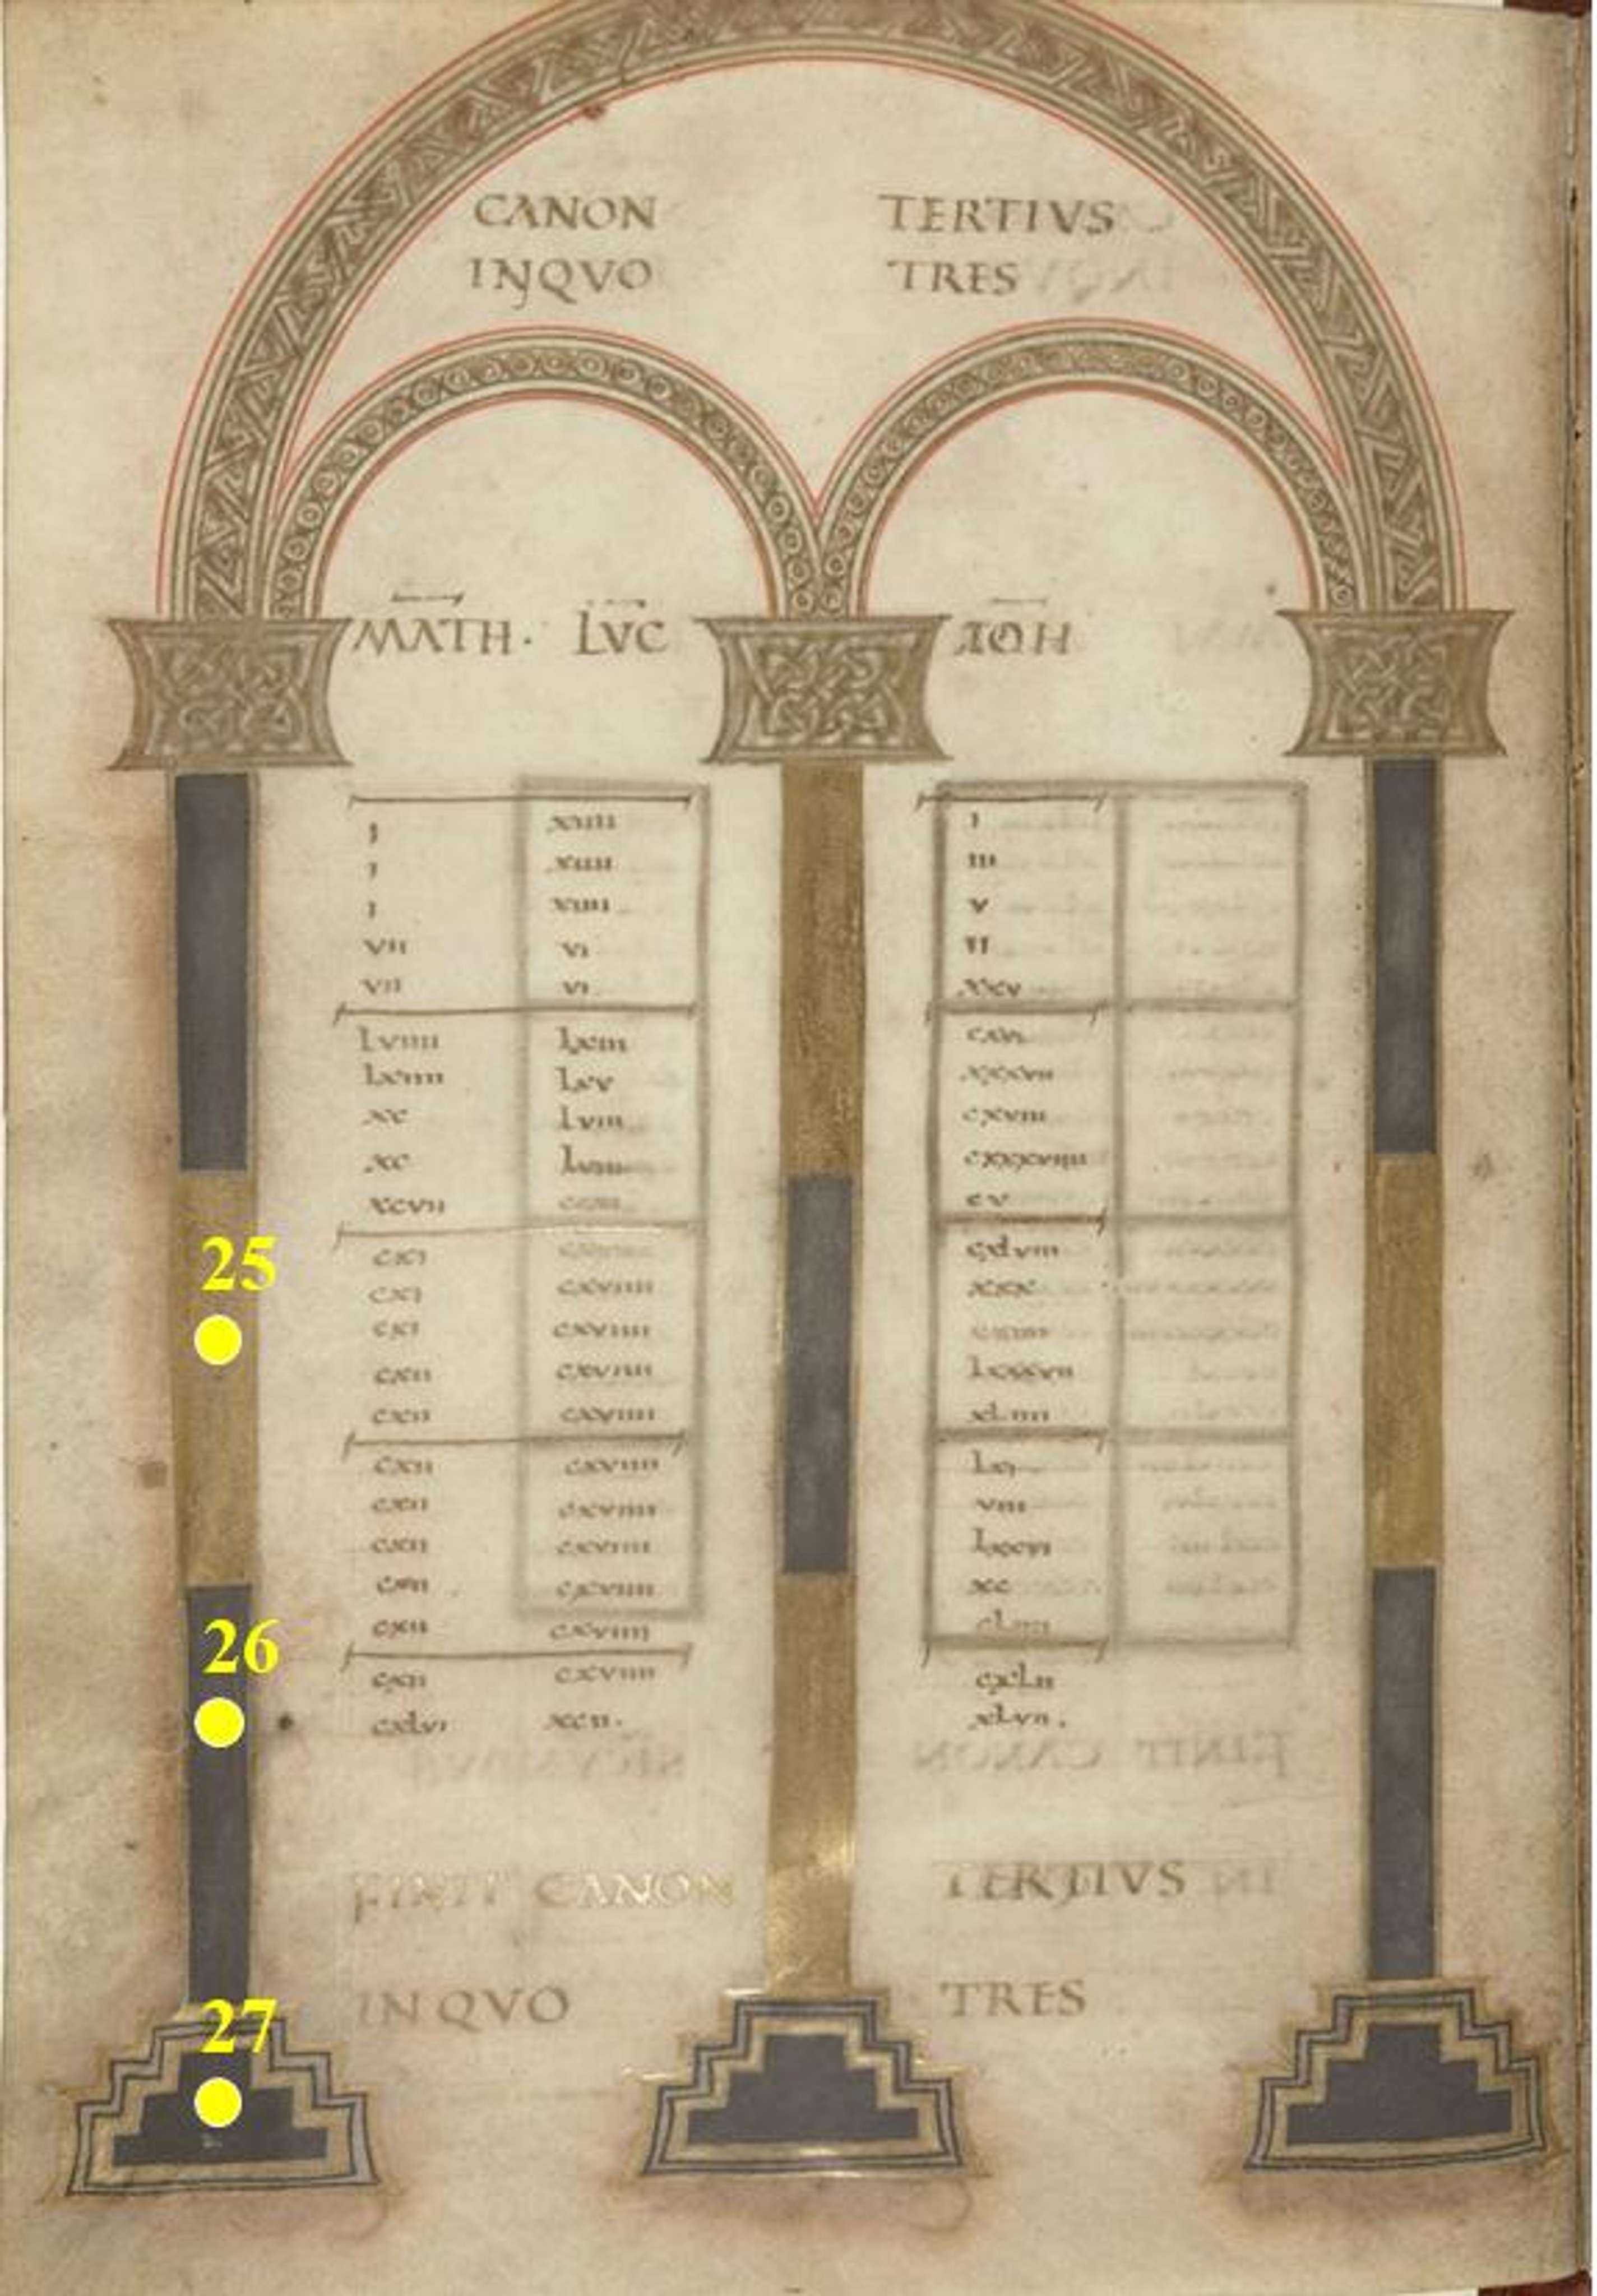 CANON TERTIVS
INQVO TRES
MATH· LVC IOH
I XIIII I
I XIIII III
I XIIII V
VII VI II
VII VI XXV
LVIIII LXIII CXVI
LXIIII LXV XXXVII
XC LVIII CXVIII
XC LVIII CXXXVIIII
XCVII CV
CXI CXLVIII
CXI CXVIIII XXX
CXI CXVIIII
CXII CXVIIII LXXXVII
CXII CXVIIII XLIIII
CXII CXVIIII LXI
CXII CXVIIII VIII
CXII CXVIIII LXXVI
CXII CXVIIII XC
CXII CXVIIII
CXII CXVIIII CXLII
CXLVI XCII· XLVII·
FINIT CANON TERTIVS
INQVO TRES
25
26
27